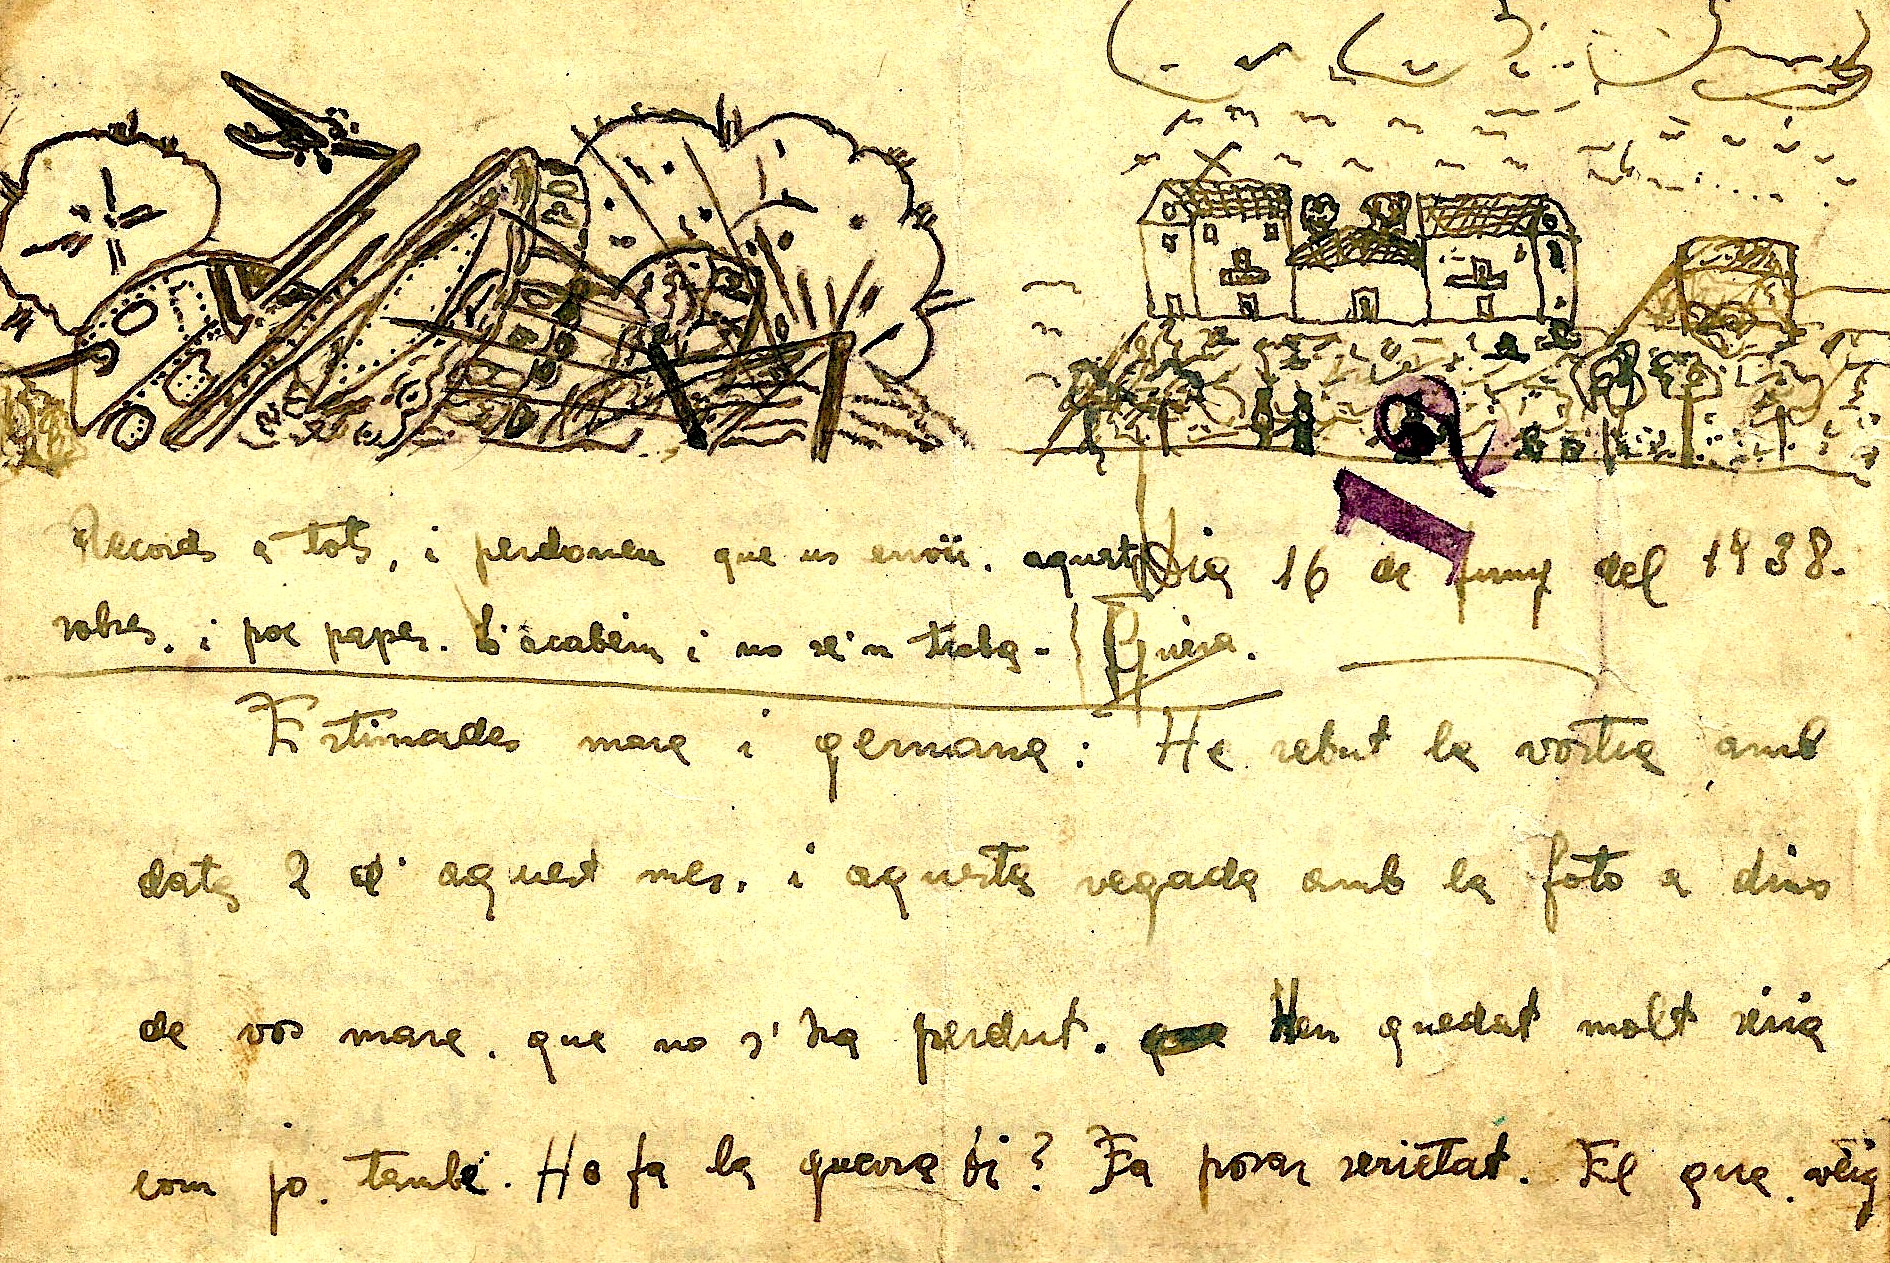 Records a tots, i perdoneu que us envii. aquets
sobres. i poc paper. S'acabem i no se'n troba-
Dia 16 de Juny del 1938.
Estimades mare i germana: He rebut la vostra amb
data 2 d'aquest mes. i aquesta vegada amb la foto a dins
de vos mare. que no s'ha perdut. Heu quedat molt séria
com jo. també. Ho fa la guerra si? Fa posar serietat. El que. vèig